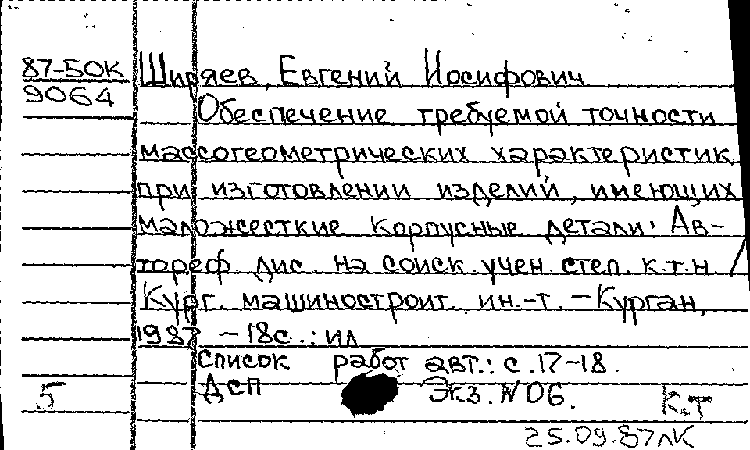 87-50К Ширяев, Евгений Иосифович
9064 Обеспечение требуемой точности
массогеометрических характеристик
при изготовлении изделий, имеющих
маложесткие корпусные детали: Ав-
тореф. дис. на соиск. учен. степ. к.т.н /
Кург. машиностроит. ин.-т. – Курган,
1987 – 18с.: ил
Список работ авт.: с. 17–18.
5 ДСП Экз. N 06. К.Т
25.09.87лК